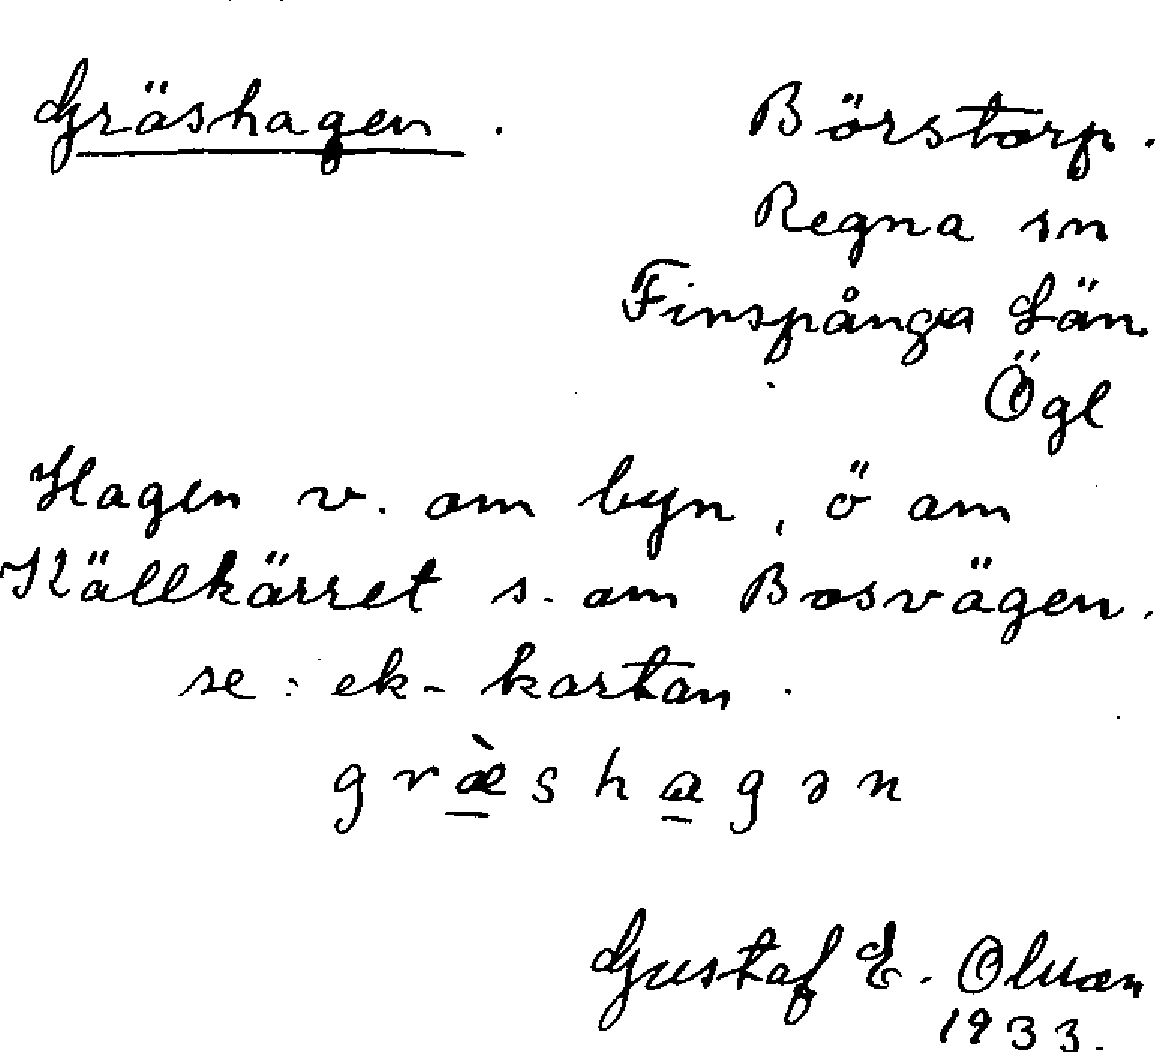 Gräshagen. Börstorp.
Regna sn
Finspånga Län
Ögl
Hagen v. om byn, ö om
Källkärret s. om Bosvägen.
se: ek-kartan.
græ̀shagən
Gustaf E. Olsson
1933.